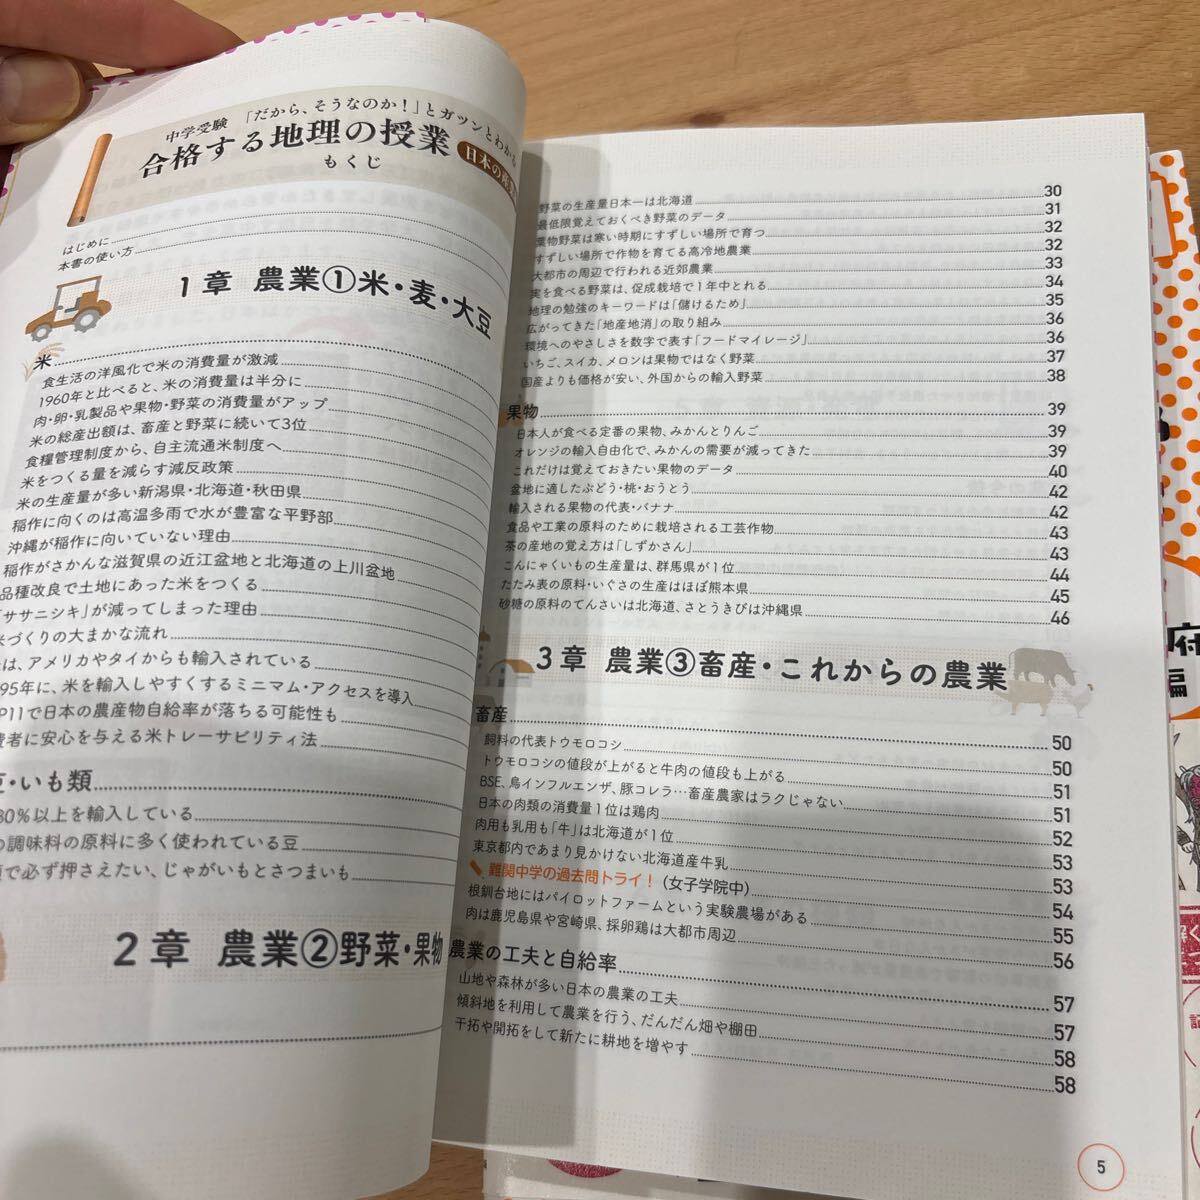 中学受験 「だから、そうなのか!」とガツンとわかる
合格する地理の授業
日本の産
もくじ
はじめに
本書の使い方
1章 農業①米・麦・大豆
米
食生活の洋風化で米の消費量が激減
1960年と比べると、米の消費量は半分に
肉・卵・乳製品や果物・野菜の消費量がアップ
米の総産出額は、畜産と野菜に続いて3位
食糧管理制度から、自主流通米制度へ
米をつくる量を減らす減反政策
米の生産量が多い新潟県・北海道・秋田県
稲作に向くのは高温多雨で水が豊富な平野部
沖縄が稲作に向いていない理由
稲作がさかんな滋賀県の近江盆地と北海道の上川盆地
品種改良で土地にあった米をつくる
「ササニシキ」が減ってしまった理由
米づくりの大まかな流れ
は、アメリカやタイからも輸入されている
95年に、米を輸入しやすくするミニマム・アクセスを導入
P11で日本の農産物自給率が落ちる可能性も
費者に安心を与える米トレーサビリティ法
豆・いも類
80%以上を輸入している
の調味料の原料に多く使われている豆
で必ず押さえたい、じゃがいもとさつまいも
2章 農業②野菜・果物
野菜の生産量日本一は北海道 30
最低限覚えておくべき野菜のデータ 31
葉物野菜は寒い時期にすずしい場所で育つ 32
すずしい場所で作物を育てる高冷地農業 32
大都市の周辺で行われる近郊農業 33
実を食べる野菜は、促成栽培で1年中とれる 34
地理の勉強のキーワードは「儲けるため」 35
広がってきた「地産地消」の取り組み 36
環境へのやさしさを数字で表す「フードマイレージ」 36
いちご、スイカ、メロンは果物ではなく野菜 37
国産よりも価格が安い、外国からの輸入野菜 38
果物 39
日本人が食べる定番の果物、みかんとりんご 39
オレンジの輸入自由化で、みかんの需要が減ってきた 39
これだけは覚えておきたい果物のデータ 40
盆地に適したぶどう・桃・おうとう 42
輸入される果物の代表・バナナ 42
食品や工業の原料のために栽培される工芸作物 43
茶の産地の覚え方は「しずかさん」 43
こんにゃくいもの生産量は、群馬県が1位 44
たたみ表の原料・いぐさの生産はほぼ熊本県 45
砂糖の原料のてんさいは北海道、さとうきびは沖縄県 46
3章 農業③畜産・これからの農業
畜産 50
飼料の代表トウモロコシ 50
トウモロコシの値段が上がると牛肉の値段も上がる 51
BSE、鳥インフルエンザ、豚コレラ…畜産農家はラクじゃない 51
日本の肉類の消費量1位は鶏肉 52
肉用も乳用も「牛」は北海道が1位 53
東京都内であまり見かけない北海道産牛乳 53
難関中学の過去問トライ!(女子学院中) 54
根釧台地にはパイロットファームという実験農場がある 55
肉は鹿児島県や宮崎県、採卵鶏は大都市周辺 56
農業の工夫と自給率 57
山地や森林が多い日本の農業の工夫 57
傾斜地を利用して農業を行う、だんだん畑や棚田 58
干拓や開拓をして新たに耕地を増やす 58
5
府
編